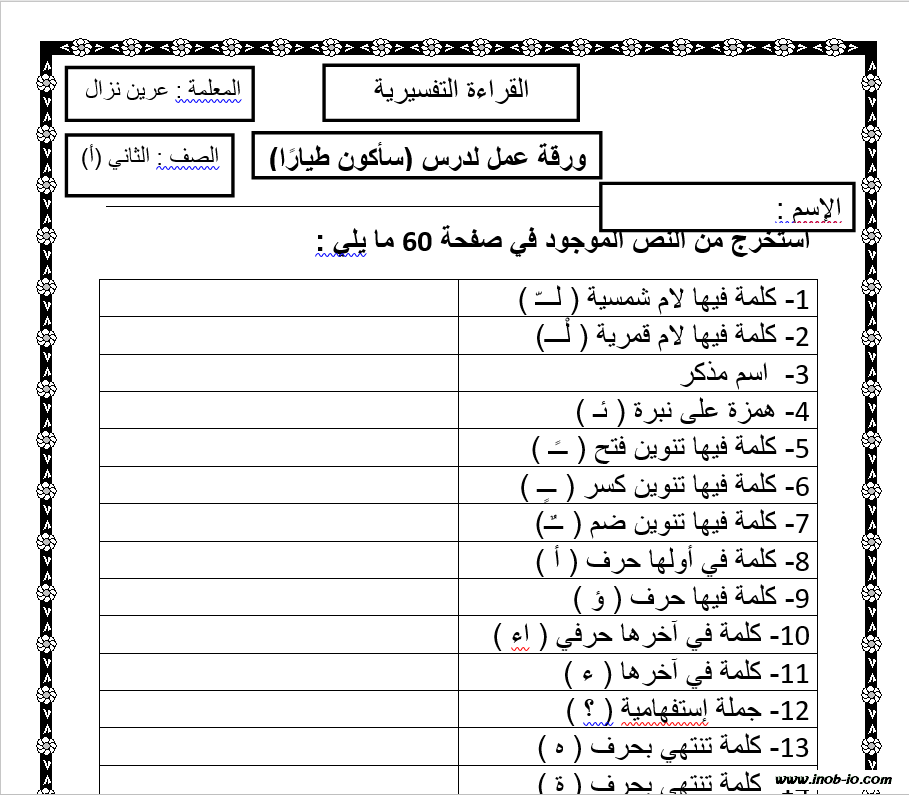 القراءة التفسيرية
المعلمة : عرين نزال
ورقة عمل لدرس (سأكون طيارًا)
الصف : الثاني (أ)
الإسم :
استخرج من النص الموجود في صفحة 60 ما يلي :
1- كلمة فيها لام شمسية ( لــّ )
2- كلمة فيها لام قمرية ( لْــ)
3- اسم مذكر
4- همزة على نبرة ( ئـ )
5- كلمة فيها تنوين فتح ( ــً )
6- كلمة فيها تنوين كسر ( ــٍ )
7- كلمة فيها تنوين ضم ( ــٌ)
8- كلمة في أولها حرف ( أ )
9- كلمة فيها حرف ( ؤ )
10- كلمة في آخرها حرفي ( اء )
11- كلمة في آخرها ( ء )
12- جملة إستفهامية ( ؟ )
13- كلمة تنتهي بحرف ( ه )
كلمة تنتهي بحرف ( ة )
www.inob-io.com